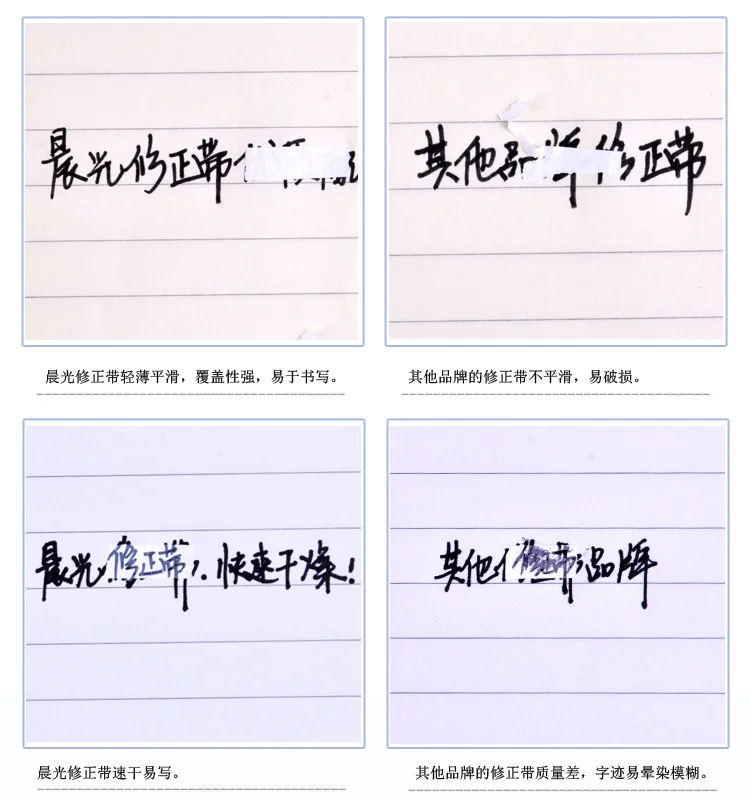 晨光修正带
其他品牌修正带
晨光修正带轻薄平滑，覆盖性强，易于书写。
其他品牌的修正带不平滑，易破损。
晨光修正带，快速干燥！
其他修正带品牌
晨光修正带速干易写。
其他品牌的修正带质量差，字迹易晕染模糊。